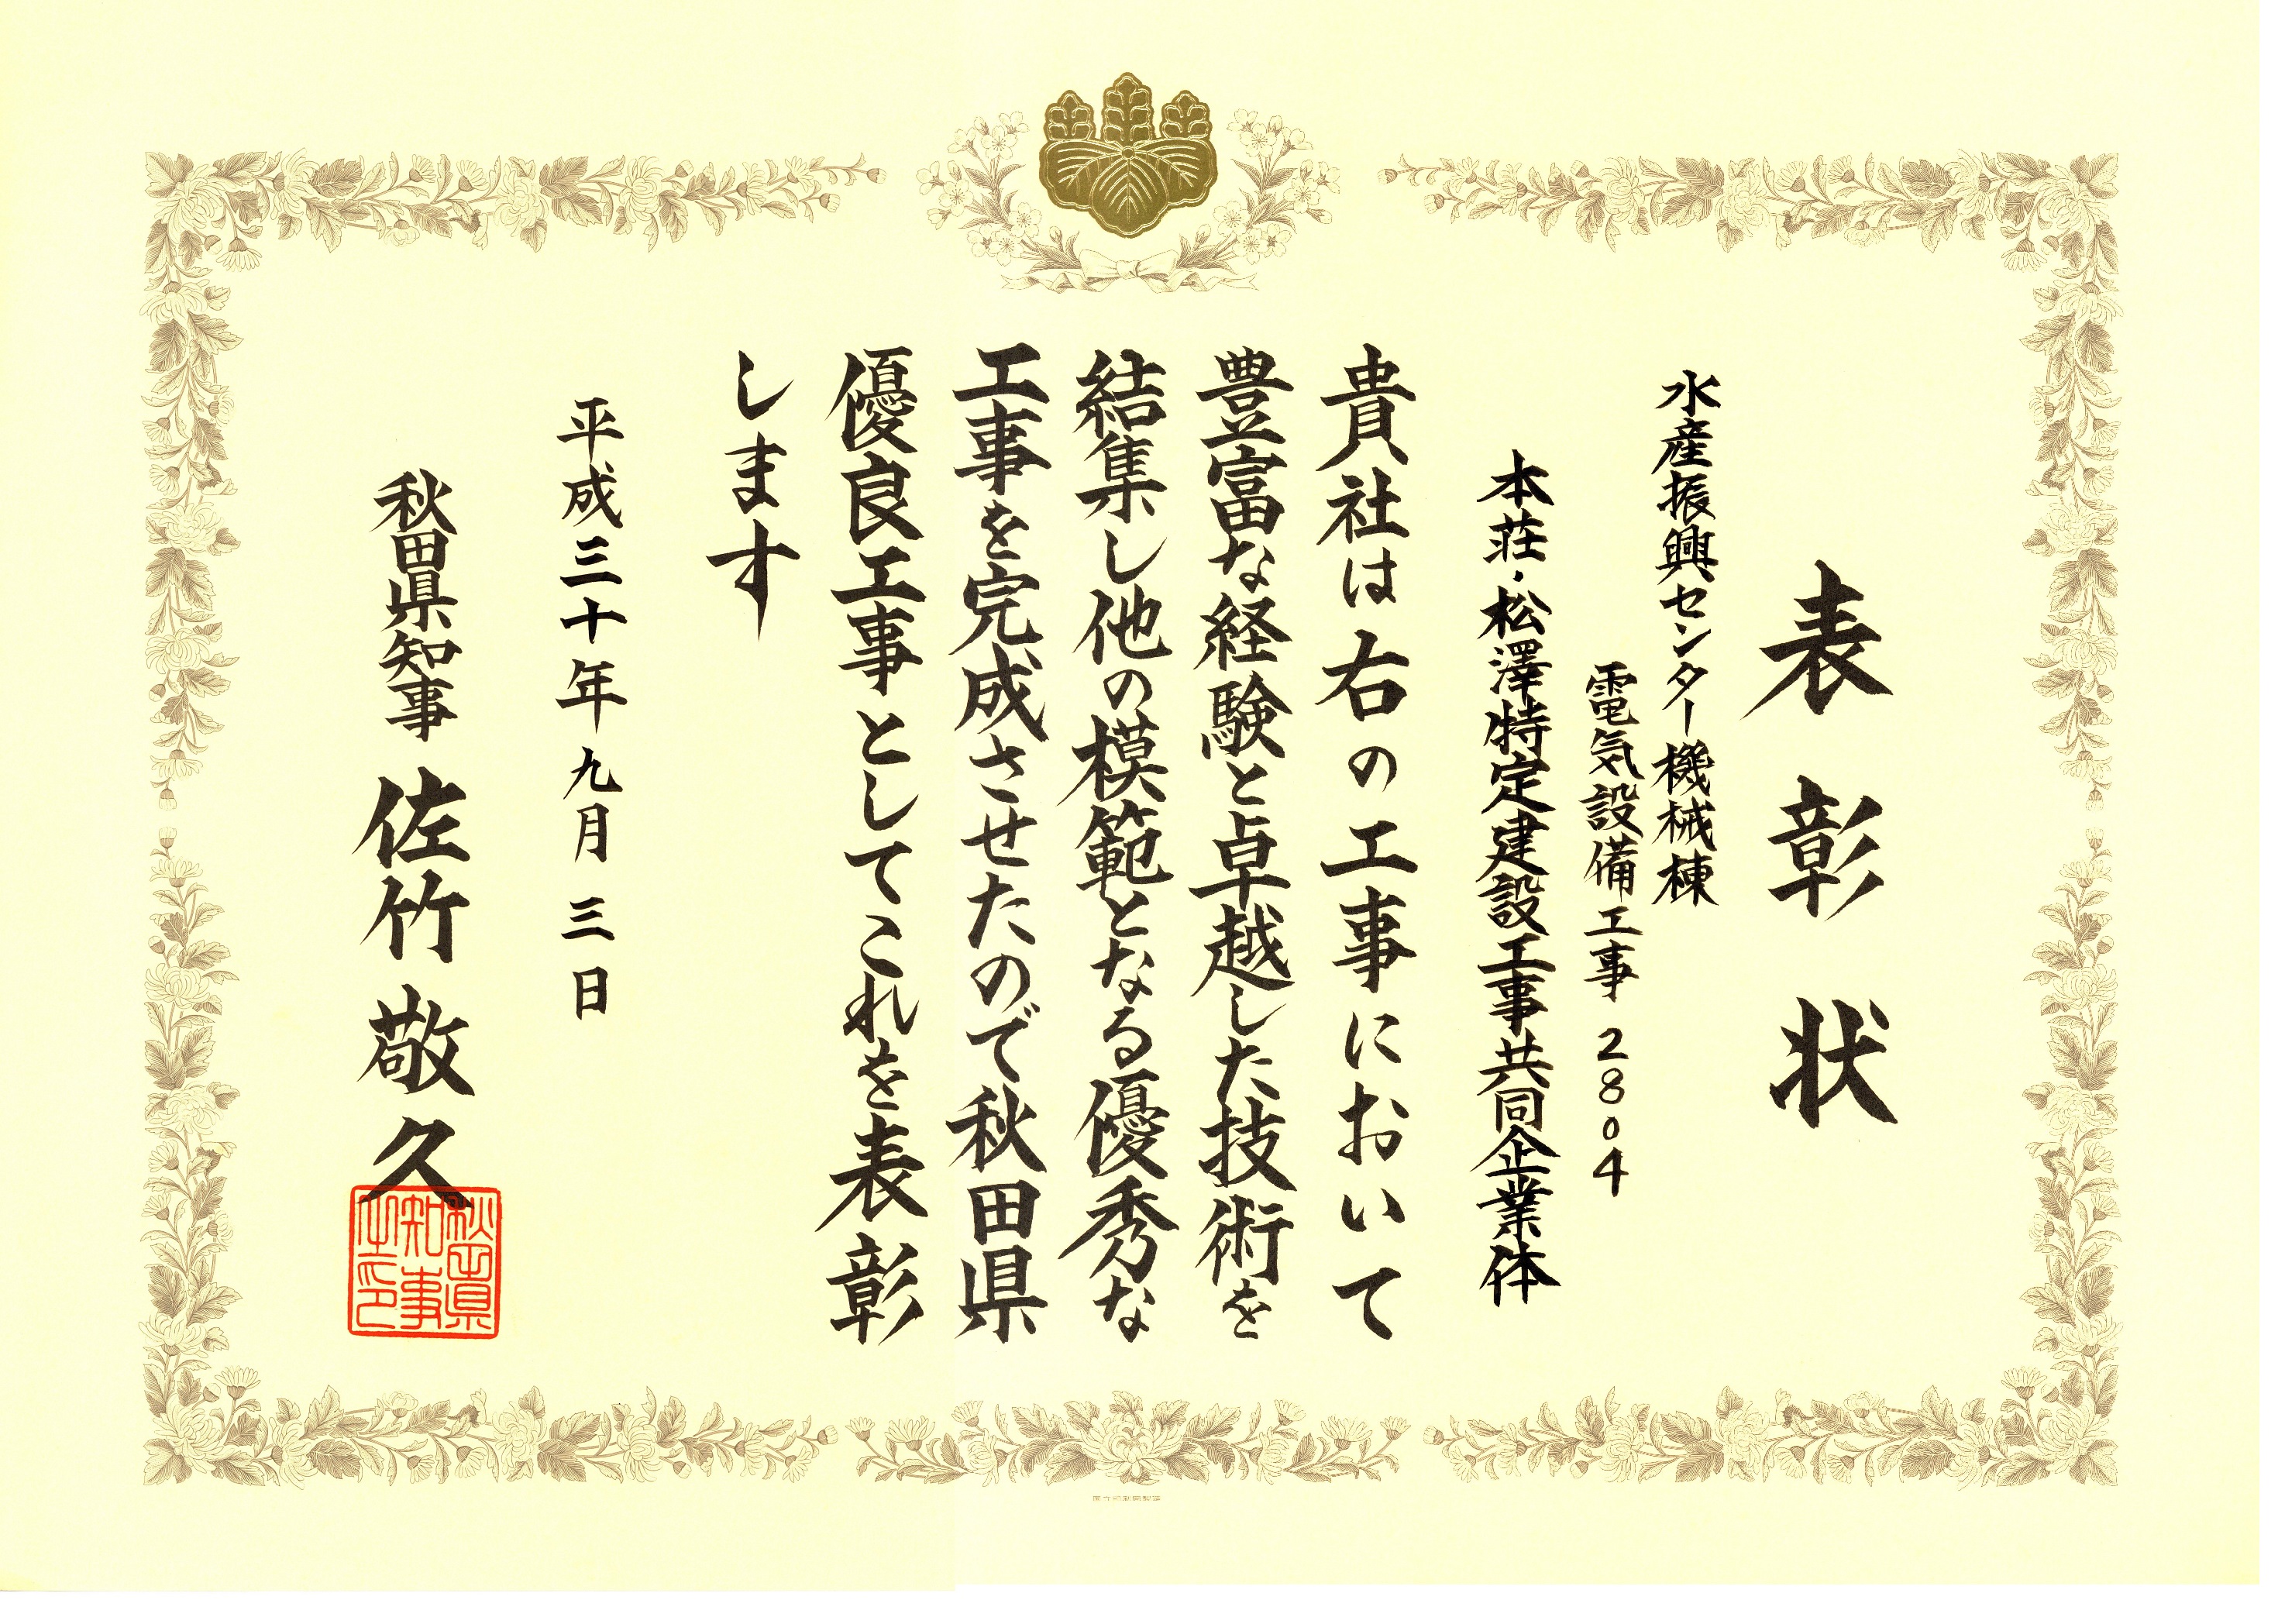 表彰状
水産振興センター機械棟
電気設備工事 2804
本荘・松澤特定建設工事共同企業体
貴社は右の工事において
豊富な経験と卓越した技術を
結集し他の模範となる優秀な
工事を完成させたので秋田県
優良工事としてこれを表彰
します
平成三十年九月三日
秋田県知事 佐竹敬久
秋田県
知事
之印